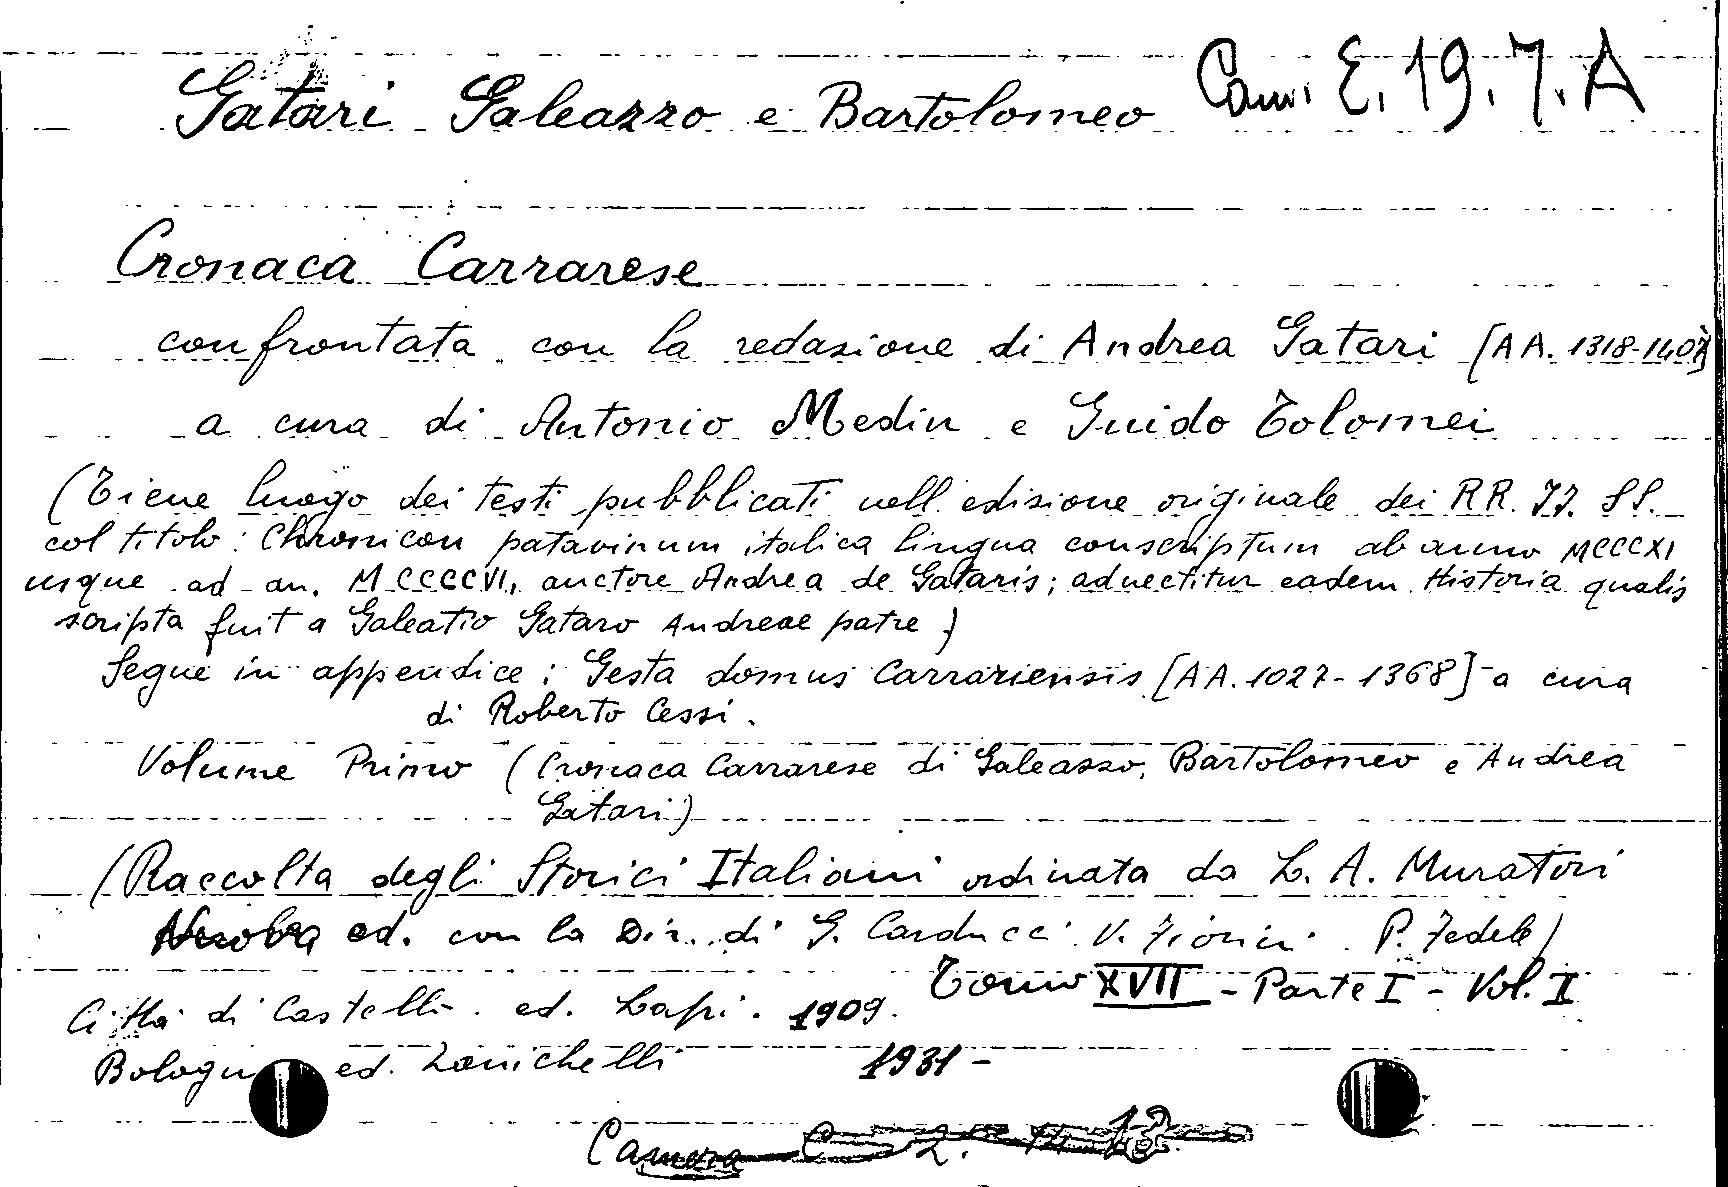 Gatari Galeazzo e Bartolomeo Cam. E. 19. 7. A
Cronaca Carrarese
confrontata con la redazione di Andrea Gatari [AA. 1318-1407]
a cura di Antonio Medin e Guido Tolomei
(Tiene luogo dei testi pubblicati nell edizione originale dei RR. II. SS.
col titolo: Chronicon patavinum italica lingua conscriptum ab anno MCCCXI
usque ad an. MCCCCVI, auctore Andrea de Gataris; adnectitur eadem Historia qualis
scripta fuit a Galeatio Gataro Andreae patre)
Segue in appendice: Gesta domus Carrariensis [AA. 1027-1368] a cura
di Roberto Cessi.
Volume Primo (Cronaca Carrarese di Galeazzo, Bartolomeo e Andrea
Gatari)
(Raccolta degli Storici Italiani ordinata da L. A. Muratori
ed. con la Dir. di G. Carducci V. Fiorini P. Fedele)
Tomo XVII - Parte I - Vol. I
Città di Castello. ed. Lapi. 1909.
Bologna ed. Zanichelli 1931-
Camera C 2. 13